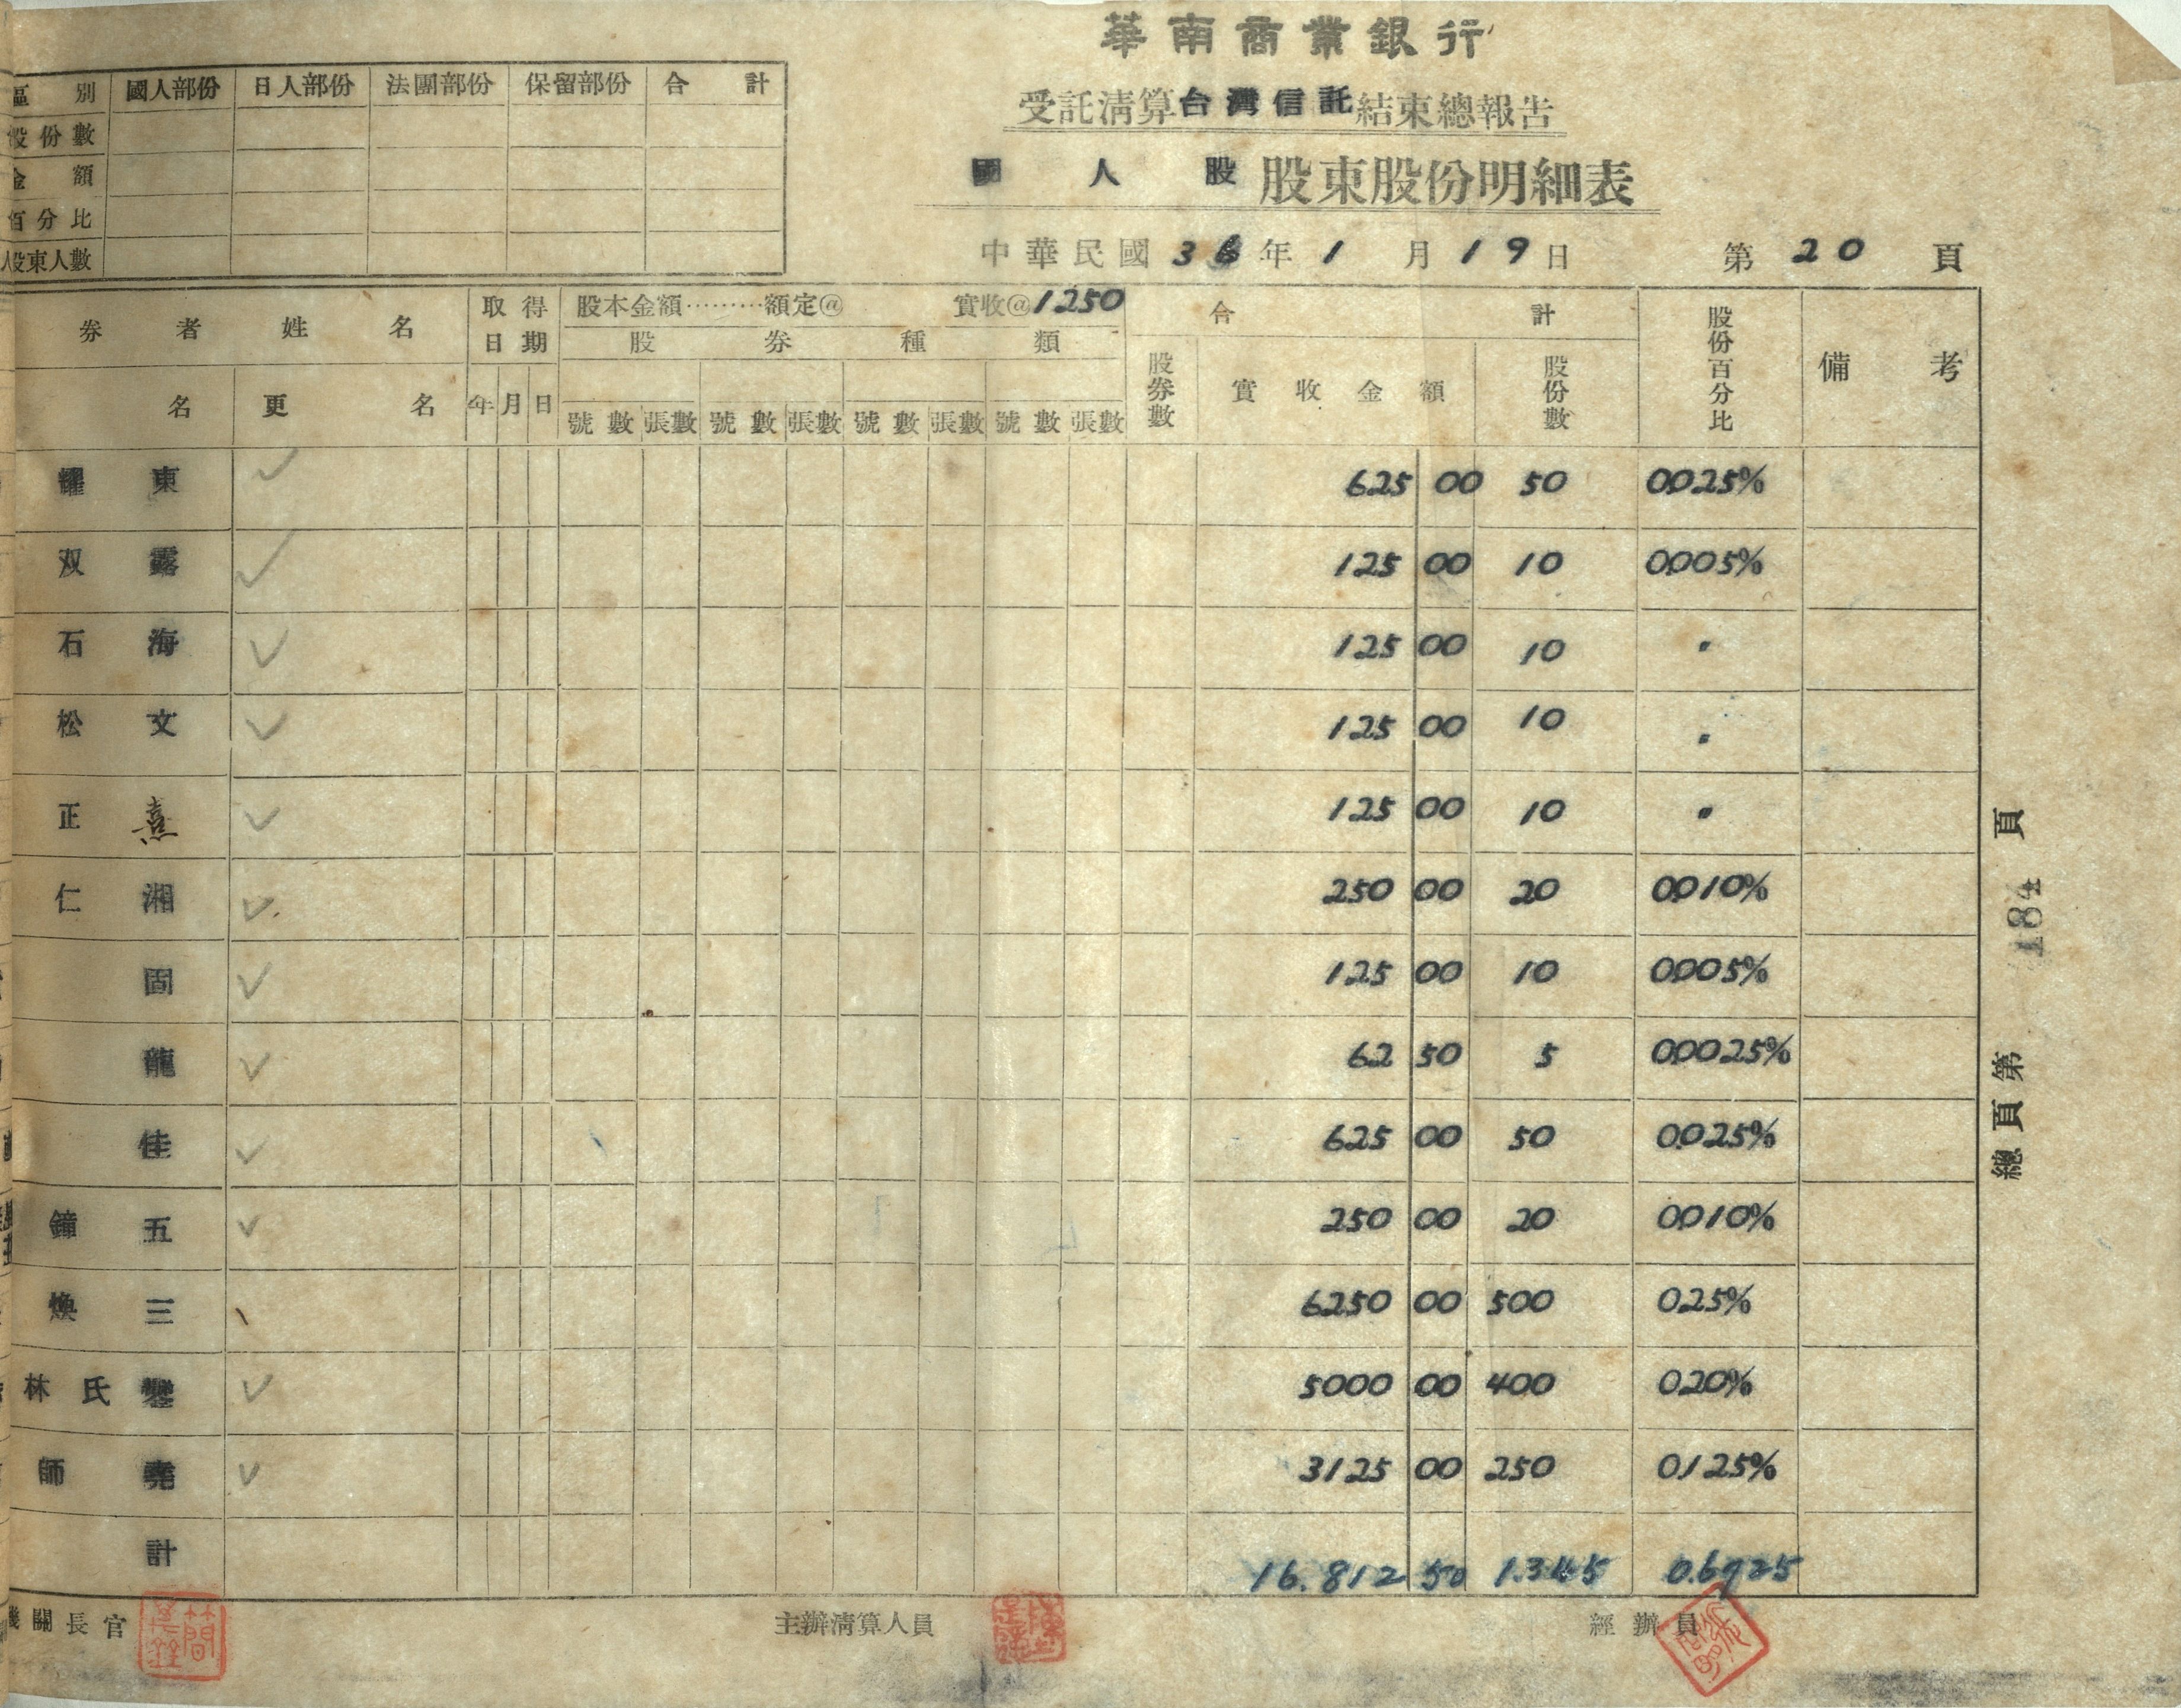 華南商業銀行
受託清算台灣信託結束總報告
國人股 股東股份明細表
中華民國36年1月19日 第20頁
區別 國人部份 日人部份 法團部份 保留部份 合計
股份數
金額
百分比
股東人數
券者姓名 取得日期 股本金額………額定@ 實收@1250 合計 股份百分比 備考
股券種類
名 更名 年 月 日 號數 張數 號數 張數 號數 張數 號數 張數 股券數 實收金額 股份數
耀東 625 00 50 0.025%
双露 125 00 10 0.005%
石海 125 00 10 〃
松文 125 00 10 〃
正熹 125 00 10 〃
仁湘 250 00 20 0.010%
固 125 00 10 0.005%
龍 62 50 5 0.0025%
佳 625 00 50 0.025%
鐘五 250 00 20 0.010%
煥三 6250 00 500 0.25%
林氏 5000 00 400 0.20%
師堯 3125 00 250 0.125%
計 16.812 50 1.345 0.6725
機關長官 主辦清算人員 經辦員
總頁第 184 頁